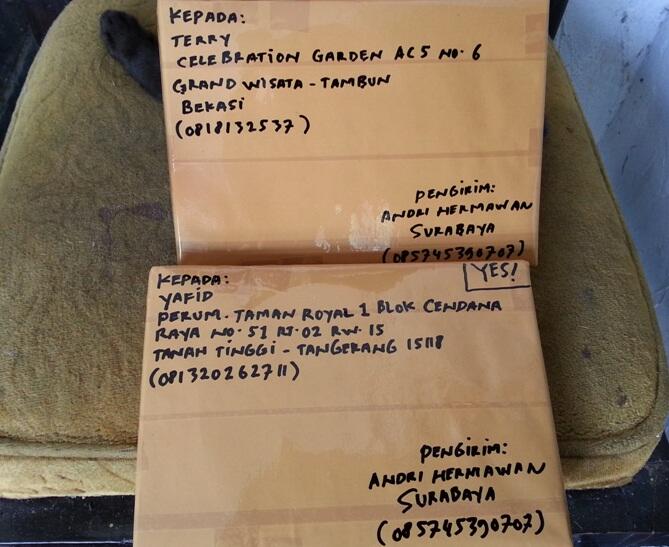 KEPADA:
TERRY
CELEBRATION GARDEN AC5 NO. 6
GRAND WISATA - TAMBUN
BEKASI
(0818132537)
PENGIRIM:
ANDRI HERMAWAN
SURABAYA
(085745390707)
YES!
KEPADA:
YAFID
PERUM. TAMAN ROYAL 1 BLOK CENDANA
RAYA NO. 51 RT. 02 RW. 15
TANAH TINGGI - TANGERANG 15118
(081320262711)
PENGIRIM:
ANDRI HERMAWAN
SURABAYA
(085745390707)